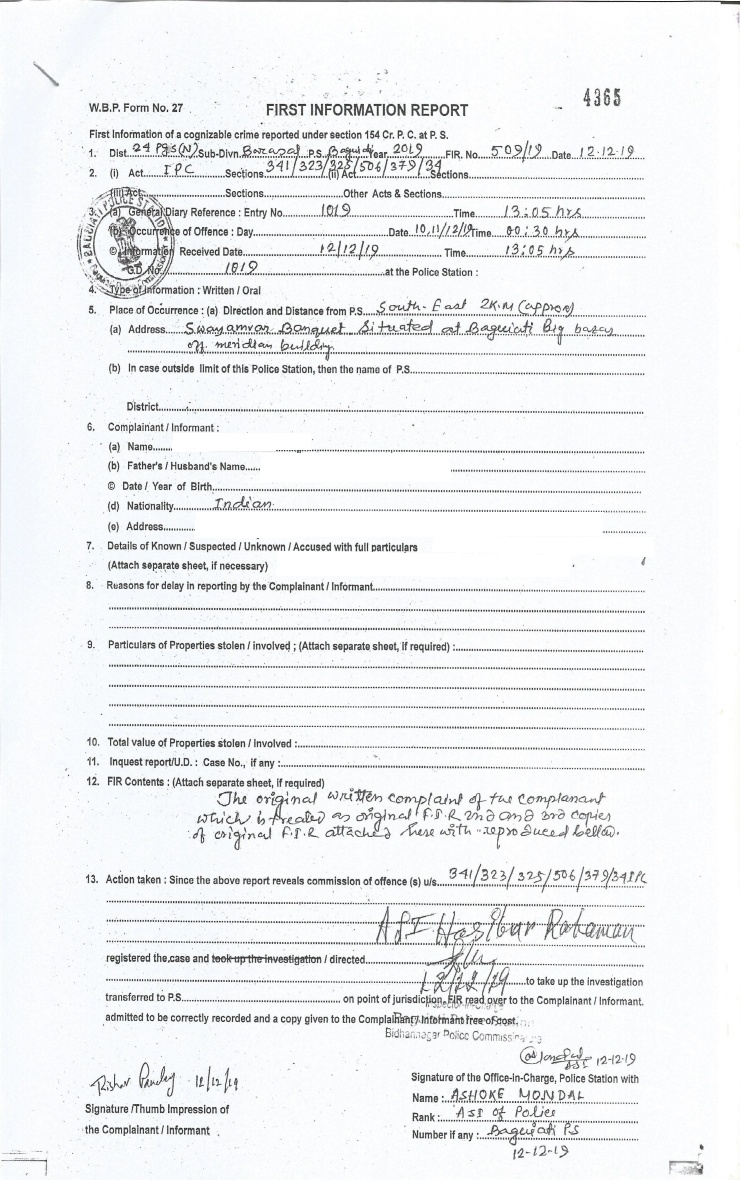 4365
W.B.P. Form No. 27 FIRST INFORMATION REPORT
First Information of a cognizable crime reported under section 154 Cr. P. C. at P. S.
1. Dist. 24 Pgs(N) Sub-Divn. Barasat P.S. Baguiati Year 2019 FIR. No. 509/19 Date 12-12-19
2. (i) Act IPC Sections 341/323/325/506/379/34 (ii) Act Sections
(iii) Act Sections Other Acts & Sections
3. (a) General Diary Reference : Entry No. 1019 Time 13:05 hrs
(b) Occurrence of Offence : Day Date 10,11/12/19 Time 00:30 hrs
© Information Received Date 12/12/19 Time 13:05 hrs
G.D. No. 1019 at the Police Station :
4. Type of Information : Written / Oral
5. Place of Occurrence : (a) Direction and Distance from P.S. South-East 2K.M (approx)
(a) Address Swayamvar Banquet Situated at Baguiati Big bazar
of meridian building.
(b) In case outside limit of this Police Station, then the name of P.S.
District
6. Complainant / Informant :
(a) Name
(b) Father's / Husband's Name
© Date / Year of Birth
(d) Nationality Indian
(e) Address
7. Details of Known / Suspected / Unknown / Accused with full particulars
(Attach separate sheet, if necessary)
8. Reasons for delay in reporting by the Complainant / Informant
9. Particulars of Properties stolen / involved ; (Attach separate sheet, if required) :
10. Total value of Properties stolen / involved :
11. Inquest report/U.D. : Case No., if any :
12. FIR Contents : (Attach separate sheet, if required)
The original written complaint of the complanant
which is treated as original F.I.R 2nd and 3rd copies
of original F.I.R attached here with reproduced bellow.
13. Action taken : Since the above report reveals commission of offence (s) u/s. 341/323/325/506/379/34 IPC
ASI Hasibur Rahaman
registered the,case and took up the investigation / directed
12/12/19 to take up the investigation
transferred to P.S. on point of jurisdiction, FIR read over to the Complainant / Informant.
admitted to be correctly recorded and a copy given to the Complainant / Informant free of cost.
Bidhannagar Police Commissionerate
12-12-19
Rishav Pandey 12/12/19
Signature of the Office-in-Charge, Police Station with
Name : ASHOKE MONDAL
Signature /Thumb Impression of
Rank : ASI of Police
the Complainant / Informant
Number if any : Baguiati PS
12-12-19